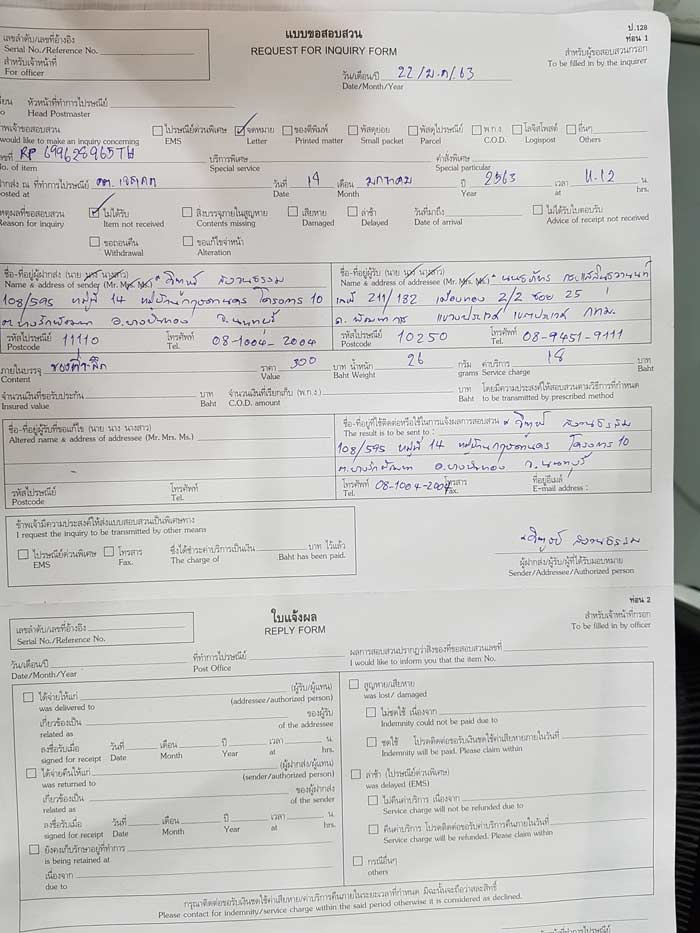 ป.128
ท่อน 1
แบบขอสอบสวน
REQUEST FOR INQUIRY FORM
เลขลำดับ/เลขที่อ้างอิง
Serial No./Reference No.
สำหรับเจ้าหน้าที่
For officer
สำหรับผู้ขอสอบสวนกรอก
To be filled in by the inquirer
วัน/เดือน/ปี 22/ม.ค/63
Date/Month/Year
หัวหน้าที่ทำการไปรษณีย์
Head Postmaster
would like to make an inquiry concerning
ไปรษณีย์ด่วนพิเศษ จดหมาย ของตีพิมพ์ พัสดุย่อย พัสดุไปรษณีย์ พ.ก.ง. โลจิสโพสต์ อื่นๆ
EMS Letter Printed matter Small packet Parcel C.O.D. Logispost Others
RP 699628965TH บริการพิเศษ คำสั่งพิเศษ
No. of item Special service Special particular
ที่ทำการไปรษณีย์ วันที่ 19 เดือน มกราคม ปี 2563 เวลา 11.12 น.
Posted at Date Month Year hrs.
เหตุผลที่ขอสอบสวน ไม่ได้รับ สิ่งบรรจุภายในสูญหาย เสียหาย ล่าช้า วันที่มาถึง ไม่ได้รับใบตอบรับ
Reason for inquiry Item not received Contents missing Damaged Delayed Date of arrival Advice of receipt not received
ขอถอนคืน ขอแก้ไขจ่าหน้า
Withdrawal Alteration
ชื่อ-ที่อยู่ผู้ฝากส่ง (นาย นาง นางสาว)
Name & address of sender (Mr. Mrs. Ms.)
108/595 หมู่ที่ 14 หมู่บ้านกฤษดานคร โครงการ 10
ต.บางรักพัฒนา อ.บางบัวทอง จ.นนทบุรี
รหัสไปรษณีย์ 11110 โทรศัพท์ 08-1004-2004
Postcode Tel.
ชื่อ-ที่อยู่ผู้รับ (นาย นาง นางสาว)
Name & address of addressee (Mr. Mrs. Ms.)
เลขที่ 211/182 เมืองทอง 2/2 ซอย 25
ถ. พัฒนาการ แขวงประเวศ เขตประเวศ กทม.
รหัสไปรษณีย์ 10250 โทรศัพท์ 08-9451-9111
Postcode Tel.
ภายในบรรจุ ของที่ระลึก ราคา 300 บาท น้ำหนัก 26 กรัม ค่าบริการ 18 บาท
Content Value Baht Weight grams Service charge Baht
จำนวนเงินที่ขอรับประกัน บาท จำนวนเงินที่เรียกเก็บ (พ.ก.ง.) บาท โดยมีความประสงค์ให้สอบสวนตามวิธีการที่กำหนด
Insured value Baht C.O.D. amount Baht to be transmitted by prescribed method
ชื่อ-ที่อยู่ผู้รับที่ขอแก้ไข (นาย นาง นางสาว)
Altered name & address of addressee (Mr. Mrs. Ms.)
รหัสไปรษณีย์ โทรศัพท์
Postcode Tel.
ชื่อ-ที่อยู่ที่ใช้ติดต่อหรือใช้ในการแจ้งผลการสอบสวน
The result is to be sent to :
108/595 หมู่ที่ 14 หมู่บ้านกฤษดานคร โครงการ 10
ต.บางรักพัฒนา อ.บางบัวทอง จ.นนทบุรี
โทรศัพท์ 08-1004-2004 โทรสาร ที่อยู่อีเมล์
Tel. Fax. E-mail address :
ข้าพเจ้ามีความประสงค์ให้ส่งแบบสอบสวนเป็นพิเศษทาง
I request the inquiry to be transmitted by other means
ไปรษณีย์ด่วนพิเศษ โทรสาร ซึ่งได้ชำระค่าบริการเป็นเงิน บาท ไว้แล้ว
EMS Fax. The charge of Baht has been paid.
ผู้ฝากส่ง/ผู้รับ/ผู้ที่ได้รับมอบหมาย
Sender/Addressee/Authorized person
ท่อน 2
ใบแจ้งผล
REPLY FORM
เลขลำดับ/เลขที่อ้างอิง
Serial No./Reference No.
สำหรับเจ้าหน้าที่กรอก
To be filled in by officer
วัน/เดือน/ปี ที่ทำการไปรษณีย์ ผลการสอบสวนปรากฏว่าสิ่งของที่ขอสอบสวนเลขที่
Date/Month/Year Post Office I would like to inform you that the item No.
ได้จ่ายให้แก่ (ผู้รับ/ผู้แทน)
was delivered to (addressee/authorized person)
เกี่ยวข้องเป็น ของผู้รับ
related as of the addressee
ลงชื่อรับเมื่อ วันที่ เดือน ปี เวลา น.
signed for receipt Date Month Year at hrs.
ได้จ่ายคืนให้แก่ (ผู้ฝากส่ง/ผู้แทน)
was returned to (sender/authorized person)
เกี่ยวข้องเป็น ของผู้ฝากส่ง
related as of the sender
ลงชื่อรับเมื่อ วันที่ เดือน ปี เวลา น.
signed for receipt Date Month Year at hrs.
ยังคงเก็บรักษาอยู่ที่ทำการ
is being retained at
เนื่องจาก
due to
สูญหาย/เสียหาย
was lost/ damaged
ไม่ชดใช้ เนื่องจาก
Indemnity could not be paid due to
ชดใช้ โปรดติดต่อขอรับเงินชดใช้ค่าเสียหายภายในวันที่
Indemnity will be paid. Please claim within
ล่าช้า (ไปรษณีย์ด่วนพิเศษ)
was delayed (EMS)
ไม่คืนค่าบริการ เนื่องจาก
Service charge will not be refunded due to
คืนค่าบริการ โปรดติดต่อขอรับค่าบริการคืนภายในวันที่
Service charge will be refunded. Please claim within
กรณีอื่นๆ
others
กรุณาติดต่อขอรับเงินชดใช้ค่าเสียหาย/ค่าบริการคืนภายในระยะเวลาที่กำหนด มิฉะนั้นจะถือว่าสละสิทธิ์
Please contact for indemnity/service charge within the said period otherwise it is considered as declined.